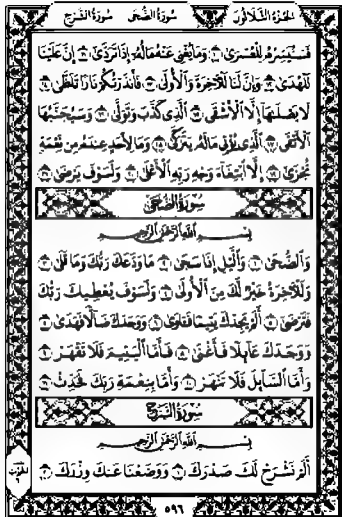 الجزء الثلاثون سورة الضحى سورة الشرح
فَسَنُيَسِّرُهُ لِلْعُسْرَىٰ وَمَا يُغْنِي عَنْهُ مَالُهُ إِذَا تَرَدَّىٰ إِنَّ عَلَيْنَا
لَلْهُدَىٰ وَإِنَّ لَنَا لَلْآخِرَةَ وَالْأُولَىٰ فَأَنذَرْتُكُمْ نَارًا تَلَظَّىٰ
لَا يَصْلَىٰهَا إِلَّا الْأَشْقَى الَّذِي كَذَّبَ وَتَوَلَّىٰ وَسَيُجَنَّبُهَا
الْأَتْقَى الَّذِي يُؤْتِي مَالَهُ يَتَزَكَّىٰ وَمَا لِأَحَدٍ عِندَهُ مِن نِّعْمَةٍ
تُجْزَىٰ إِلَّا ابْتِغَاءَ وَجْهِ رَبِّهِ الْأَعْلَىٰ وَلَسَوْفَ يَرْضَىٰ
سورة الضحى
بِسْمِ اللَّهِ الرَّحْمَٰنِ الرَّحِيمِ
وَالضُّحَىٰ وَاللَّيْلِ إِذَا سَجَىٰ مَا وَدَّعَكَ رَبُّكَ وَمَا قَلَىٰ
وَلَلْآخِرَةُ خَيْرٌ لَّكَ مِنَ الْأُولَىٰ وَلَسَوْفَ يُعْطِيكَ رَبُّكَ
فَتَرْضَىٰ أَلَمْ يَجِدْكَ يَتِيمًا فَآوَىٰ وَوَجَدَكَ ضَالًّا فَهَدَىٰ
وَوَجَدَكَ عَائِلًا فَأَغْنَىٰ فَأَمَّا الْيَتِيمَ فَلَا تَقْهَرْ
وَأَمَّا السَّائِلَ فَلَا تَنْهَرْ وَأَمَّا بِنِعْمَةِ رَبِّكَ فَحَدِّثْ
سورة الشرح
بِسْمِ اللَّهِ الرَّحْمَٰنِ الرَّحِيمِ
أَلَمْ نَشْرَحْ لَكَ صَدْرَكَ وَوَضَعْنَا عَنكَ وِزْرَكَ
٥٩٦